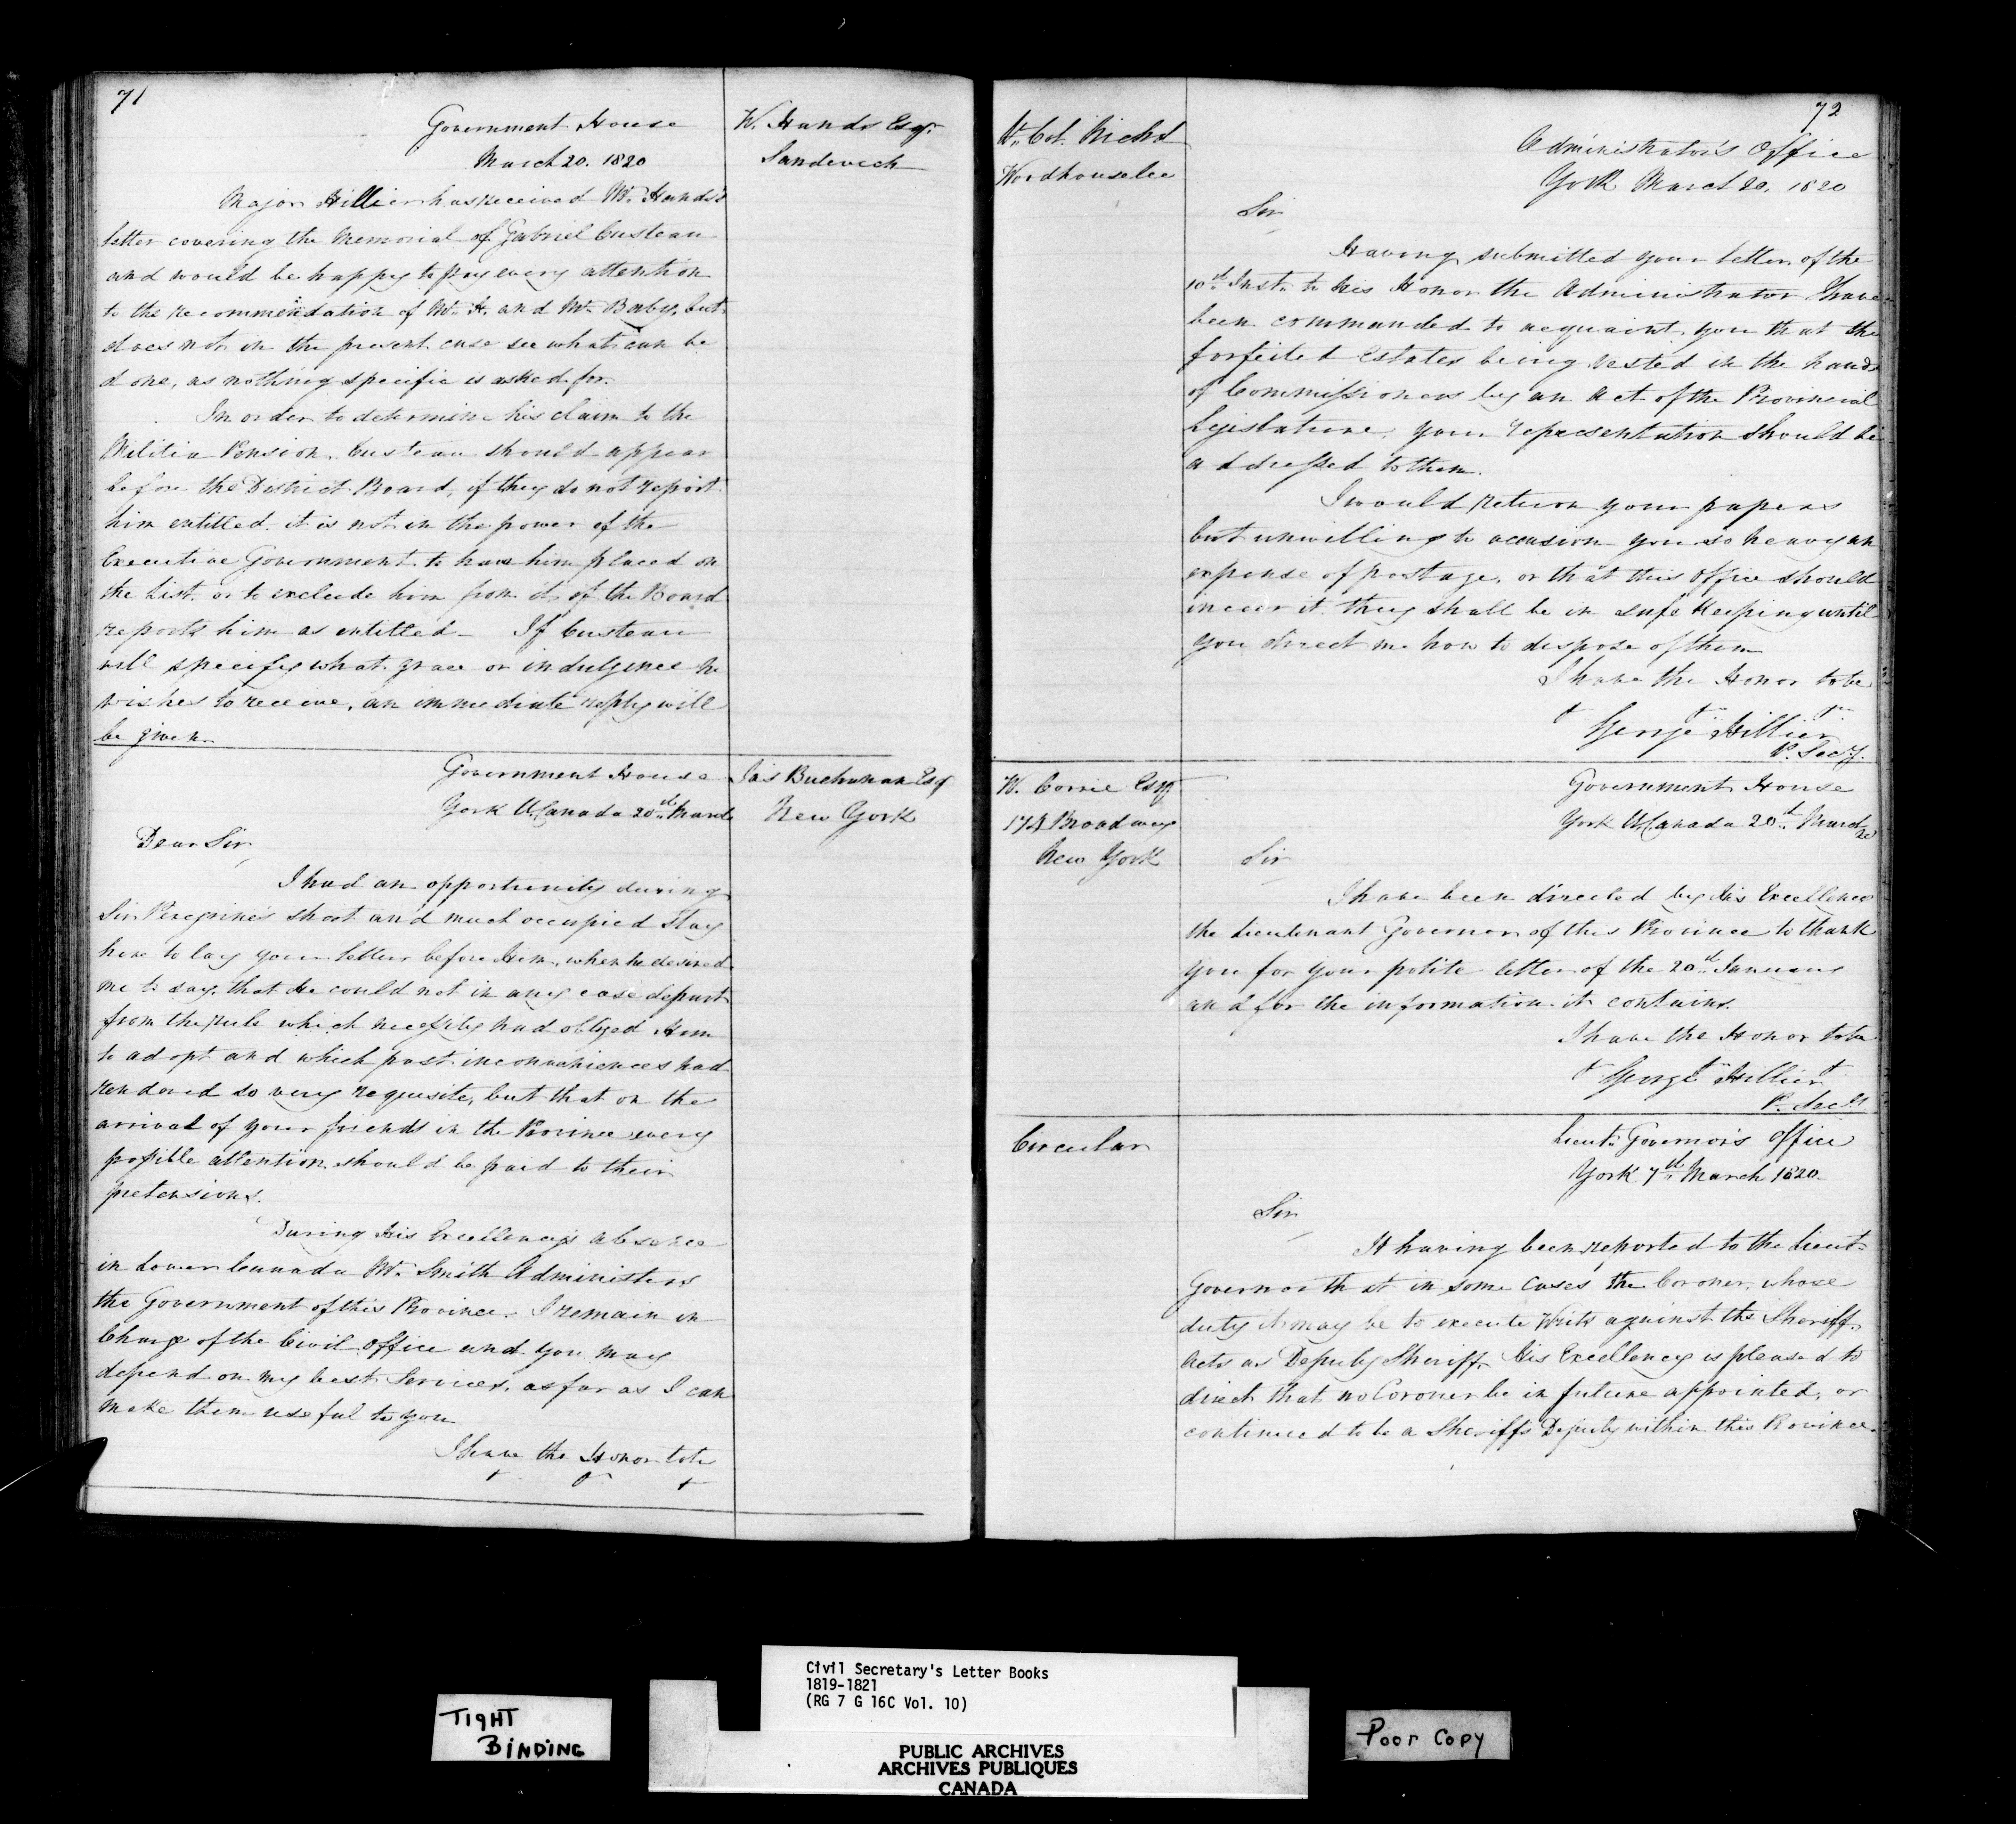 71
Government House
March 20. 1820
W. Hands Esqr.
Sandwich
Major Hillier has received Mr. Hands's
letter covering the Memorial of Gabriel Custeau
and would be happy to pay every attention
to the recommendation of Mr. H. and Mr. Baby, but
does not in the present case see what can be
done, as nothing specific is asked for.
In order to determine his claim to the
Militia Pension, Custeau should appear
before the District Board, if they do not report
him entitled. it is not in the power of the
Executive Government to have him placed on
the List. or to exclude him from it, if the Board
reports him as entitled – If Custeau
will specify what grace or indulgence he
wishes to receive, an immediate reply will
be given.
Government House
York U.Canada 20th March
Jas Buchanan Esq
New York
Dear Sir,
I had an opportunity during
Sir Peregrine's short and much occupied stay
here to lay your letter before Him, when he desired
me to say, that He could not in any case depart
from the rule which necessity had obliged Him
to adopt and which past inconveniences had
rendered so very requisite, but that on the
arrival of your friends in the Province every
possible attention should be paid to their
pretensions.
During His Excellency's absence
in Lower Canada Mr. Smith Administers
the Government of this Province. I remain in
Charge of the Civil Office and you may
depend on my best Services, as far as I can
make them useful to you
I have the Honor to be
72
Lt. Col. Nichol
Woodhouselee
Administrator's Office
York March 20, 1820
Sir
Having submitted your letter of the
10th Inst. to His Honor the Administrator I have
been commanded to acquaint you that the
forfeited Estates being vested in the hands
of Commissioners by an Act of the Provincial
Legislature, your representation should be
addressed to them.
I would return your papers
but unwilling to occasion you so heavy an
expense of postage, or that this Office should
incur it they shall be in safe keeping until
you direct me how to dispose of them
I have the Honor to be
George Hillier
P. Secy.
W. Corrie Esq
174 Broadway
New York
Government House
York U.Canada 20th March
20
Sir
I have been directed by His Excellency
the Lieutenant Governor of this Province to thank
you for your polite letter of the 20th January
and for the information it contains.
I have the Honor to be
George Hillier
P. Secy
Circular
Lieut. Governor's Office
York 7th March 1820
Sir
It having been reported to the Lieut.
Governor that in some cases the Coroner, whose
duty it may be to execute Writs against the Sheriff,
Acts as Deputy Sheriff, His Excellency is pleased to
direct that no Coroner be in future appointed, or
continued to be a Sheriff's Deputy within this Province.
TIGHT
BINDING
Civil Secretary's Letter Books
1819-1821
(RG 7 G 16C Vol. 10)
PUBLIC ARCHIVES
ARCHIVES PUBLIQUES
CANADA
Poor Copy